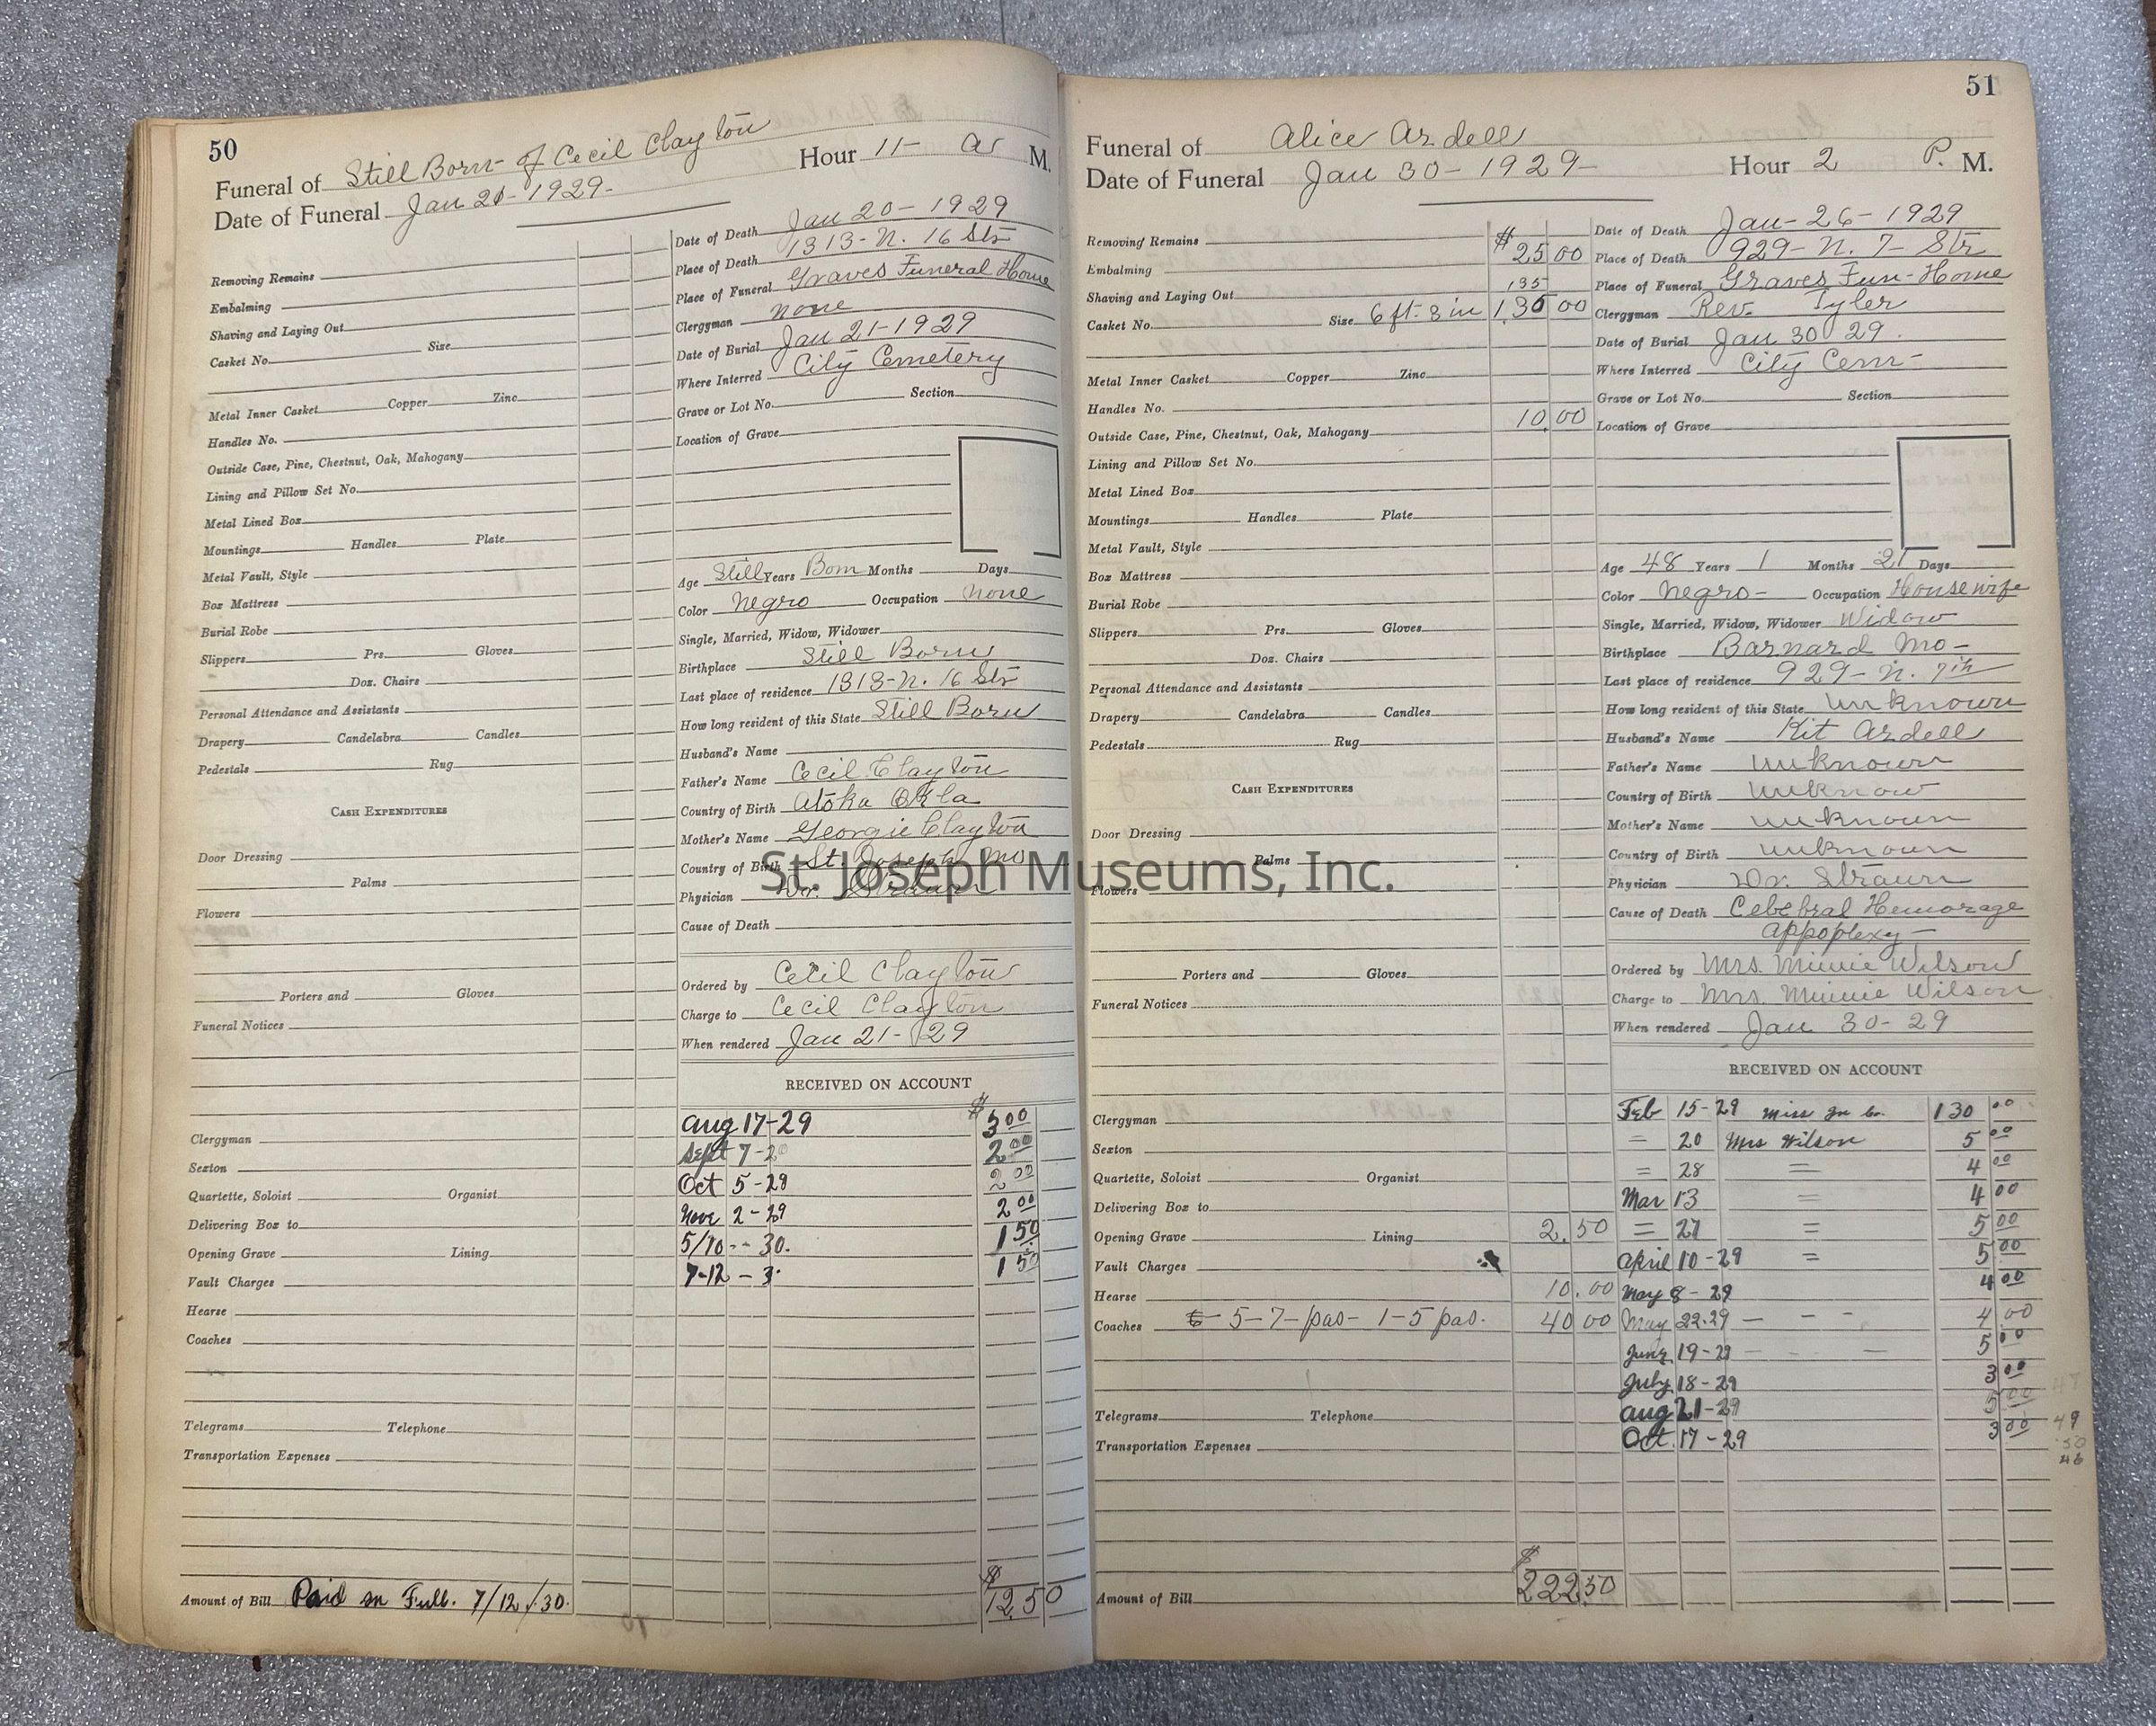 50
Funeral of Still Born- of Cecil Clayton Hour 11- a M.
Date of Funeral Jan 21-1929-
Removing Remains
Embalming
Shaving and Laying Out
Casket No. Size
Metal Inner Casket Copper Zinc
Handles No.
Outside Case, Pine, Chestnut, Oak, Mahogany
Lining and Pillow Set No.
Metal Lined Box
Mountings Handles Plate
Metal Vault, Style
Box Mattress
Burial Robe
Slippers Prs. Gloves
Doz. Chairs
Personal Attendance and Assistants
Drapery Candelabra Candles
Pedestals Rug
CASH EXPENDITURES
Door Dressing
Palms
Flowers
Porters and Gloves
Funeral Notices
Clergyman
Sexton
Quartette, Soloist Organist
Delivering Box to
Opening Grave Lining
Vault Charges
Hearse
Coaches
Telegrams Telephone
Transportation Expenses
Amount of Bill Paid in Full. 7/12/30.
Date of Death Jan 20-1929
Place of Death 1313-N. 16 Str
Place of Funeral Graves Funeral Home
Clergyman none
Date of Burial Jan 21-1929
Where Interred City Cemetery
Grave or Lot No. Section
Location of Grave
Age Still Years Born Months Days
Color Negro Occupation none
Single, Married, Widow, Widower
Birthplace Still Born
Last place of residence 1313-N. 16 Str
How long resident of this State Still Born
Husband's Name
Father's Name Cecil Clayton
Country of Birth Atoka Okla
Mother's Name Georgie Clayton
Country of Birth St. Joseph Mo
Physician Dr. Straun
Cause of Death
Ordered by Cecil Clayton
Charge to Cecil Clayton
When rendered Jan 21-29
RECEIVED ON ACCOUNT
Aug 17-29 $3 00
Sept 7-2 2 00
Oct 5-29 2 00
Nove 2-29 2 00
5/10--30. 1 50
7-12-3. 1 50
$12.50
51
Funeral of Alice Ardell
Date of Funeral Jan 30-1929- Hour 2 P. M.
Removing Remains
Embalming $25 00
Shaving and Laying Out 135
Casket No. Size 6 ft. 3 in 130 00
Metal Inner Casket Copper Zinc
Handles No.
Outside Case, Pine, Chestnut, Oak, Mahogany 10.00
Lining and Pillow Set No.
Metal Lined Box
Mountings Handles Plate
Metal Vault, Style
Box Mattress
Burial Robe
Slippers Prs. Gloves
Doz. Chairs
Personal Attendance and Assistants
Drapery Candelabra Candles
Pedestals Rug
CASH EXPENDITURES
Door Dressing
Palms
Flowers
Porters and Gloves
Funeral Notices
Clergyman
Sexton
Quartette, Soloist Organist
Delivering Box to
Opening Grave Lining 2.50
Vault Charges
Hearse 10.00
Coaches 5-7-pas- 1-5 pas. 40 00
Telegrams Telephone
Transportation Expenses
Amount of Bill $222.50
Date of Death Jan-26-1929
Place of Death 929-N. 7-Str
Place of Funeral Graves Fun-Home
Clergyman Rev. Tyler
Date of Burial Jan 30 29.
Where Interred City Cem-
Grave or Lot No. Section
Location of Grave
Age 48 Years 1 Months 21 Days
Color Negro- Occupation Housewife
Single, Married, Widow, Widower Widow
Birthplace Barnard Mo-
Last place of residence 929-N. 7th
How long resident of this State unknown
Husband's Name Kit Ardell
Father's Name unknown
Country of Birth unknow
Mother's Name unknown
Country of Birth unknown
Physician Dr. Straun
Cause of Death Cebebral Hemorage
appoplexy-
Ordered by Mrs. Minnie Wilson
Charge to Mrs. Minnie Wilson
When rendered Jan 30-29
RECEIVED ON ACCOUNT
Feb 15-29 Miss In Co. 130 00
= 20 Mrs Wilson 5 00
= 28 = 4 00
Mar 13 = 4 00
= 27 = 5 00
April 10-29 = 5 00
May 8-29 4 00
May 22-29 - - - 4 00
June 19-29 - - - 5 00
July 18-29 3 00
Aug 21-29 5 00
Oct. 17-29 3 00
49
50
46
St. Joseph Museums, Inc.